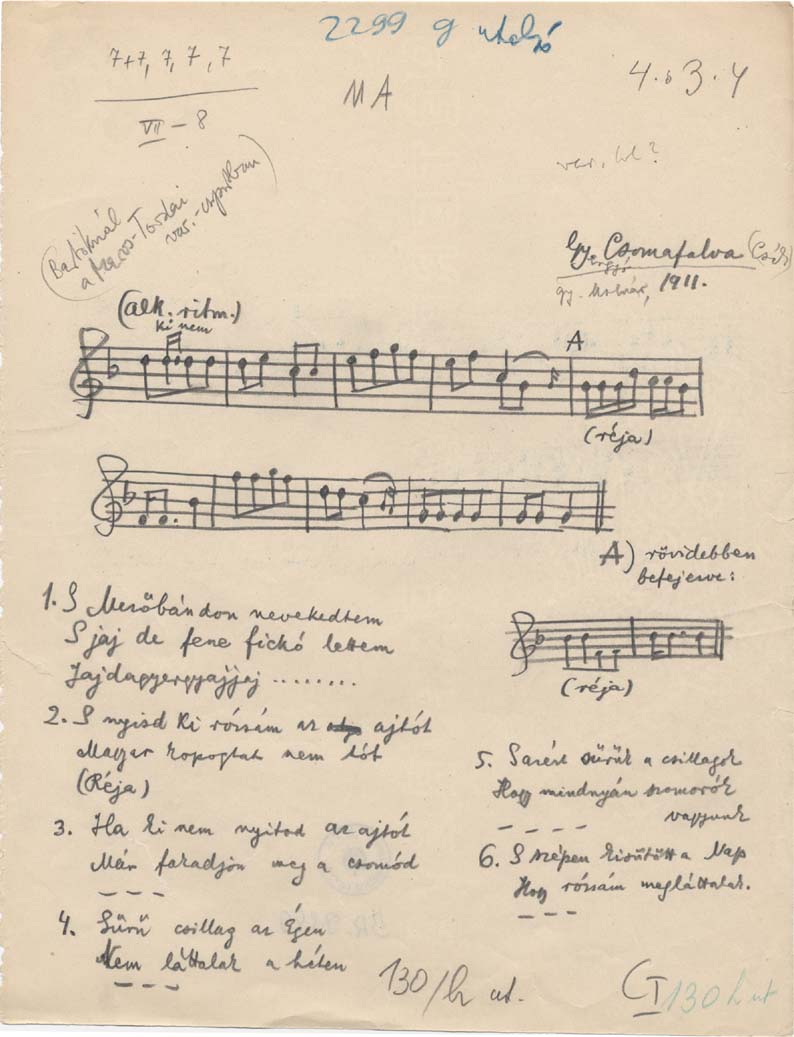 2299 g utolsó
7+7, 7, 7, 7
VII - 8
MA
4. 3. 4
var. ?
(Bartóknál
a Maros-Tordai
var.-csoportban)
Gyergyó Csomafalva (Csík)
gy. Molnár, 1911.
(alk. ritm.)
Ki nem
A
(réja)
A) rövidebben
befejezve:
(réja)
1. S Mezőbándon nevekedtem
S jaj de fene fickó lettem
Jajdagyergyajjaj ........
2. S nyisd ki rózsám az ajtót
Magyar kopogtat nem tót
(Réja)
3. Ha ki nem nyitod az ajtót
Már fakadjon meg a csomód
- - -
4. Sűrű csillag az Égen
Nem láttalak a héten
- - -
5. Sazért sűrűk a csillagok
Hogy mindnyán szomorúk
vagyunk
- - - -
6. S szépen kisütött a Nap
Hogy rózsám megláttalak.
- - - -
130/b ut.
C I 130 b ut